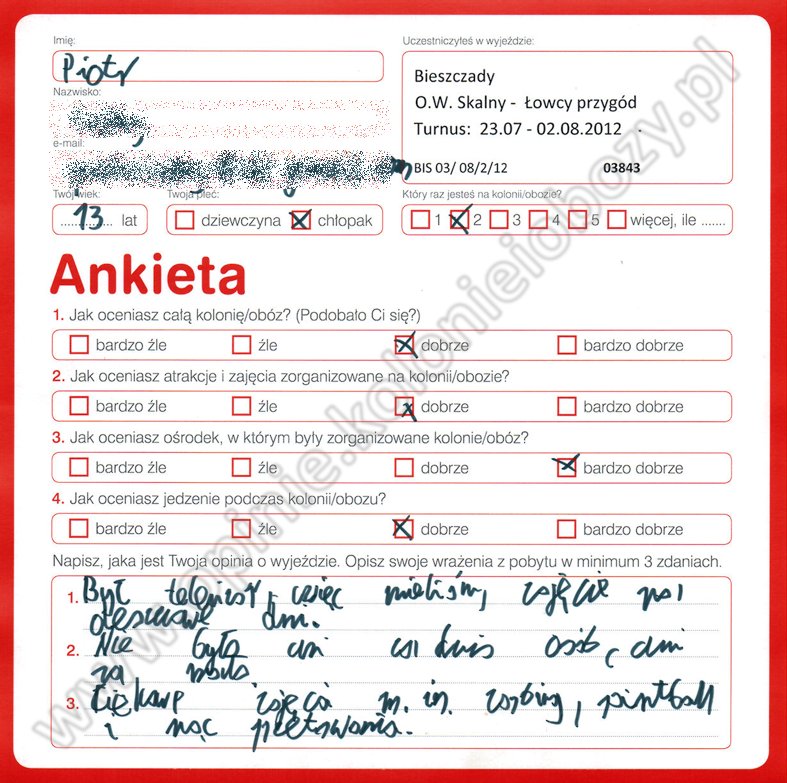 Imię:
Piotr
Nazwisko:
e-mail:
Twój wiek:
13 lat
Twoja płeć:
dziewczyna chłopak
Uczestniczyłeś w wyjeździe:
Bieszczady
O.W. Skalny - Łowcy przygód
Turnus: 23.07 - 02.08.2012
BIS 03/ 08/2/12 03843
Który raz jesteś na kolonii/obozie?
1 2 3 4 5 więcej, ile .......
Ankieta
1. Jak oceniasz całą kolonię/obóz? (Podobało Ci się?)
bardzo źle źle dobrze bardzo dobrze
2. Jak oceniasz atrakcje i zajęcia zorganizowane na kolonii/obozie?
bardzo źle źle dobrze bardzo dobrze
3. Jak oceniasz ośrodek, w którym były zorganizowane kolonie/obóz?
bardzo źle źle dobrze bardzo dobrze
4. Jak oceniasz jedzenie podczas kolonii/obozu?
bardzo źle źle dobrze bardzo dobrze
Napisz, jaka jest Twoja opinia o wyjeździe. Opisz swoje wrażenia z pobytu w minimum 3 zdaniach.
1. Był telewizor, więc mieliśmy zajęcie na
deszczowe dni.
2. Nie była ani za dużo osób, ani
za mało
3. Ciekawe zajęcia m. in. zorbing, pintball
i noc przetrwania.
www.opinie.kolonieiobozy.pl